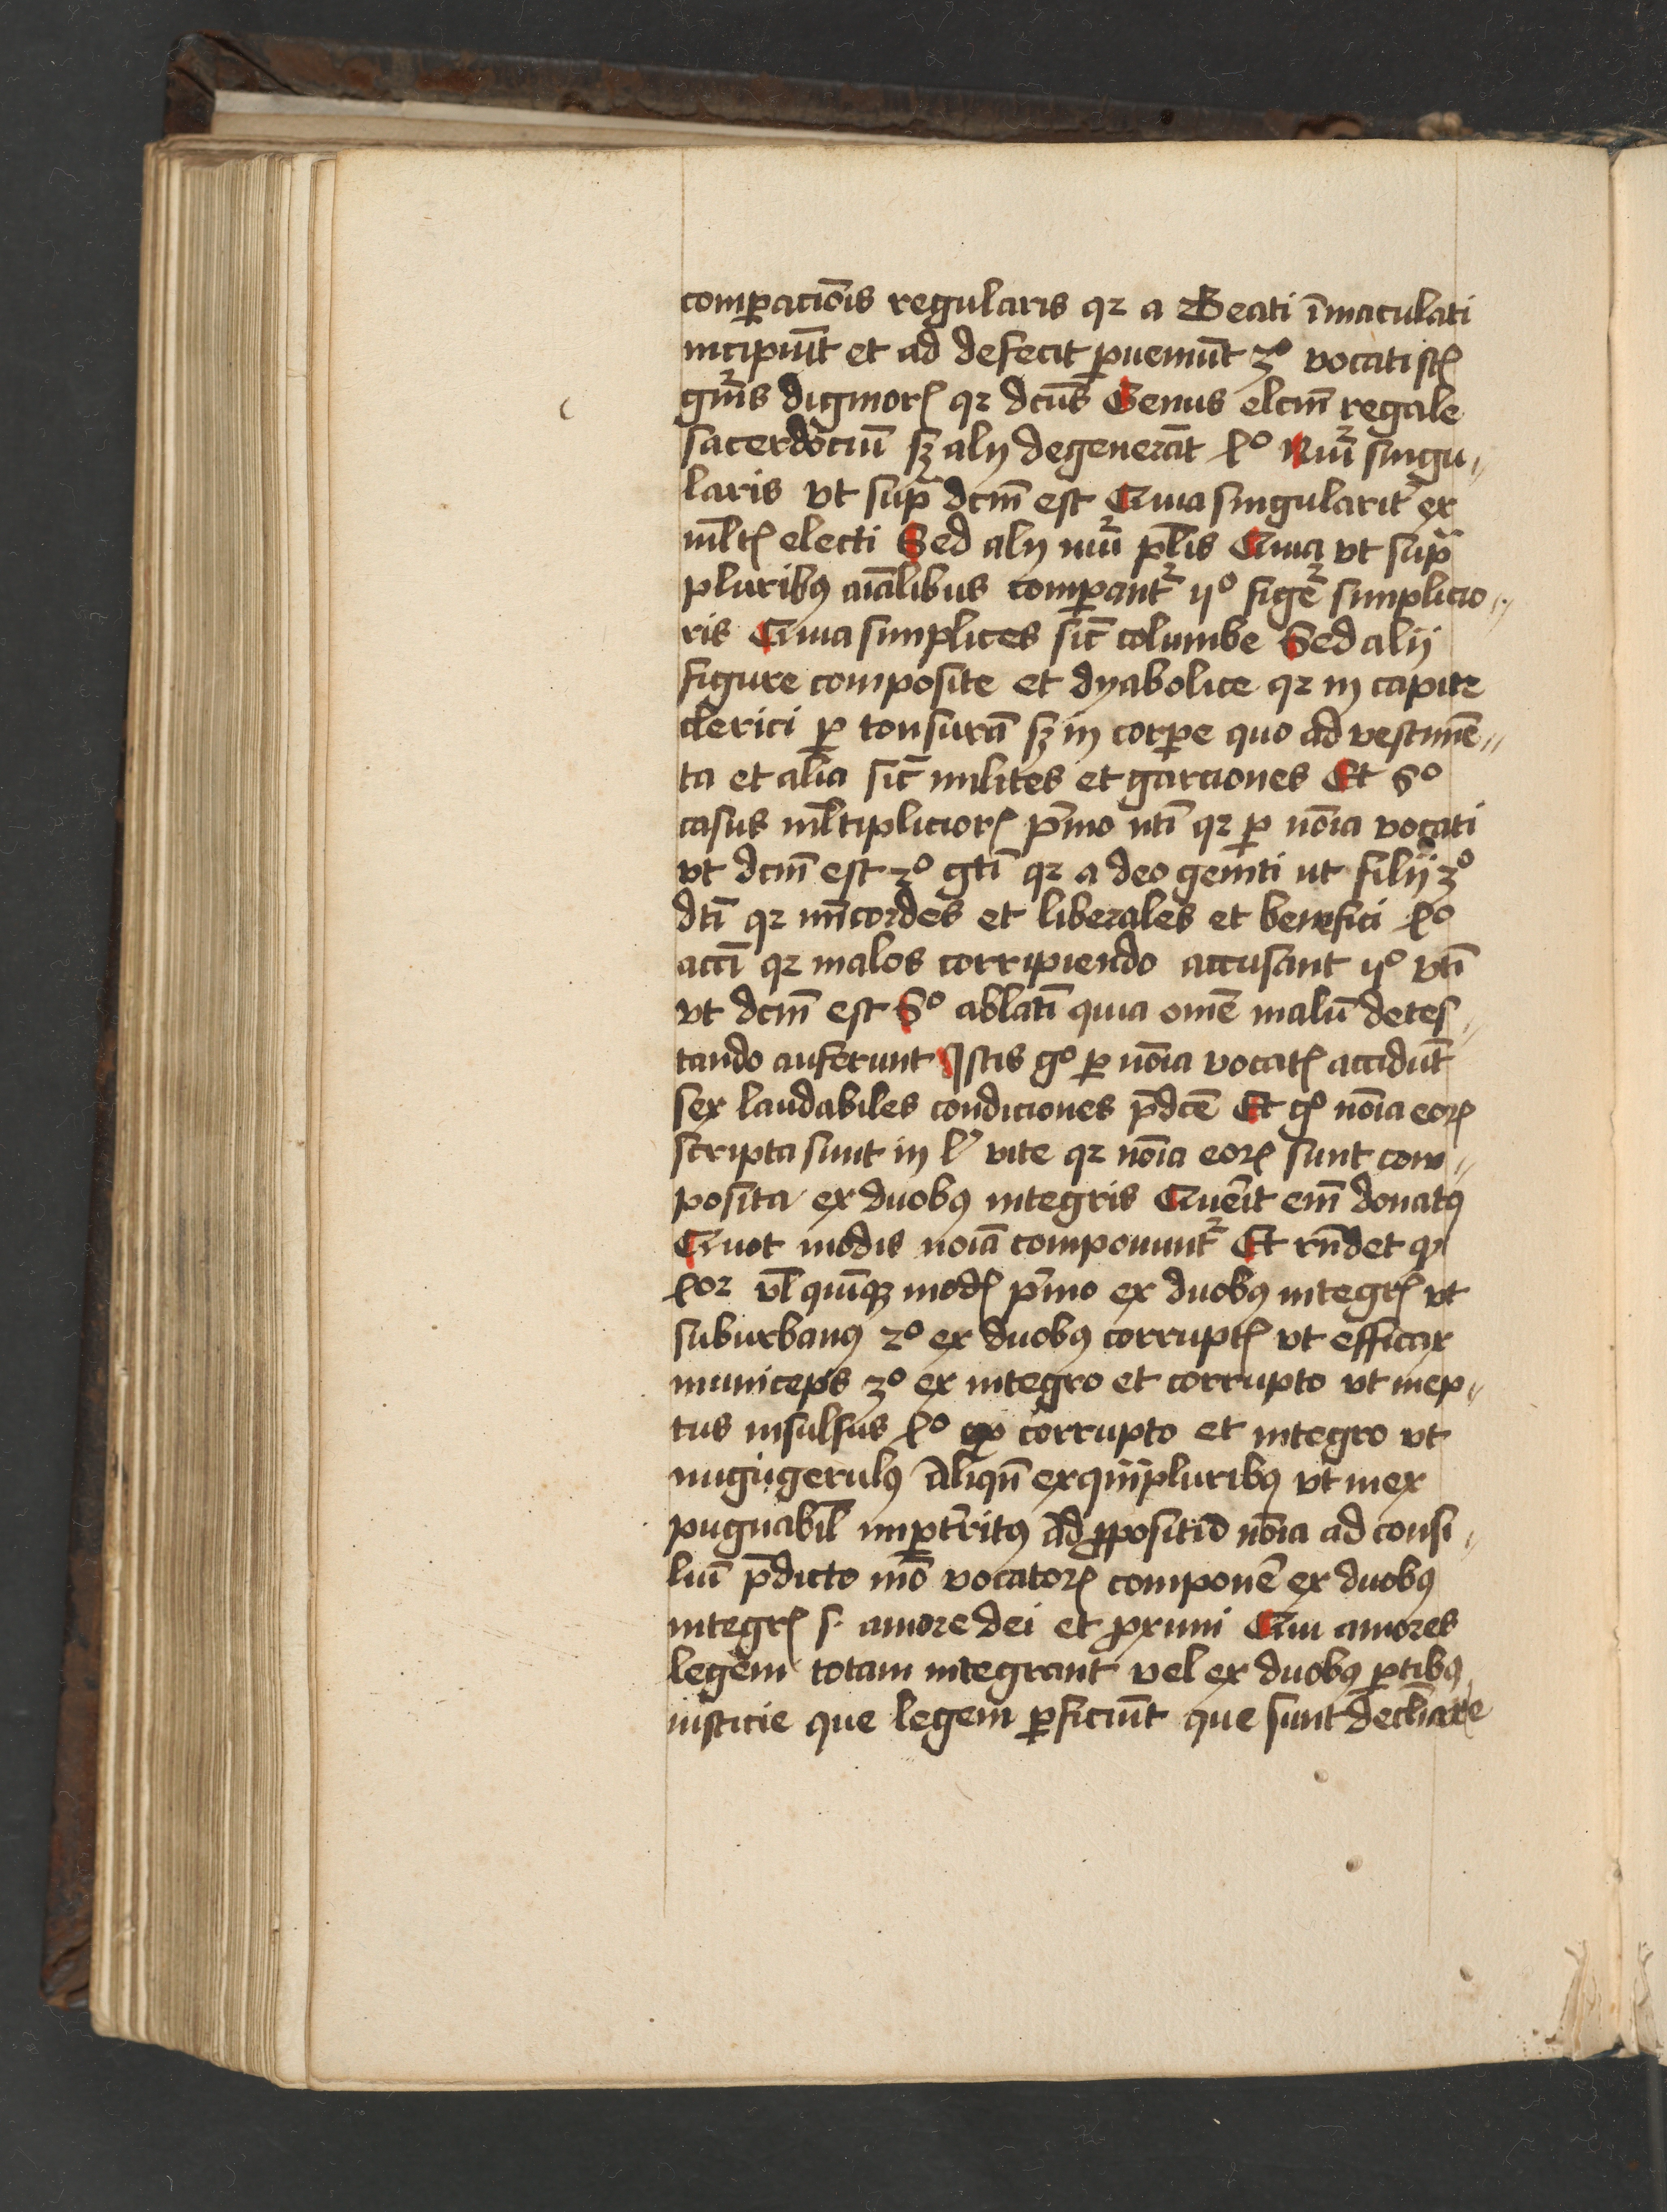 comꝑac̄ionis regularis qꝛ a Beati īmaculati
incipiūt et ad defecit ꝑueniūt 3º vocati sūt
gnīs dignioꝝ qꝛ dcūs Genus elcm̄ regale
sacerdociū sꝫ alij degenerāt 4º Nūi singu〃
laris vt sup̄ dcm̄ est Quia singularit̄ ex
ml̄tꝭ electi Sed alij nūi pl̄is Quia vt sup̄
pluribꝰ aīalibus comꝑantᷣ vº figē simplicio〃
ris Quia simplices sic̄ columbe Sed alij
figure composite et dyabolice qꝛ in capite
clerici ꝑ tonsurā sꝫ in corꝑe quo ad vestimē〃
ta et alia sic̄ milites et garciones Et 6º
casus ml̄tiplicioꝝ p̄mo nt̄i qꝛ ꝑ nōia vocati
vt dcm̄ est 2º gt̄i qꝛ a deo geniti ut filij 3º
dt̄i qꝛ mīcordes et liberales et benefici 4º
acc̄i qꝛ malos corripiendo accusant vº vt̄i
vt dcm̄ est 6º ablat̄i quia om̄e malū detes〃
tando auferunt Istis gº ꝑ nōia vocatꝭ accidūt
sex laudabiles condiciones p̄dc̄e Et nōia eoꝝ
scripta sunt in lº vite qꝛ nōia eoꝝ sunt com〃
posita ex duobꝰ integris Querit em̄ donatꝰ
Quot modis noīa componuntᷣ Et rn̄det ꝙ
4or vl̄ quīqꝫ modꝭ p̄mo ex duobꝰ integrꝭ vt
suburbanꝰ 2º ex duobꝰ corruptꝭ vt efficax
municeps 3º ex integro et corrupto vt inep〃
tus insulsus 4º ex corrupto et integro vt
nugigerulꝰ Aliqn̄ ex pluribꝰ vt inex
pugnabil̄ imꝑt̄ritꝰ Ad ꝓpositū nōia ad consi〃
liū p̄dicto mō vocatoꝝ componē ex duobꝰ
integrꝭ s. amore dei et ꝓximi Qui amores
legem totam integrant vel ex duobꝰ ꝑtibꝰ
iusticie que legem ꝑficiūt que sunt declīare